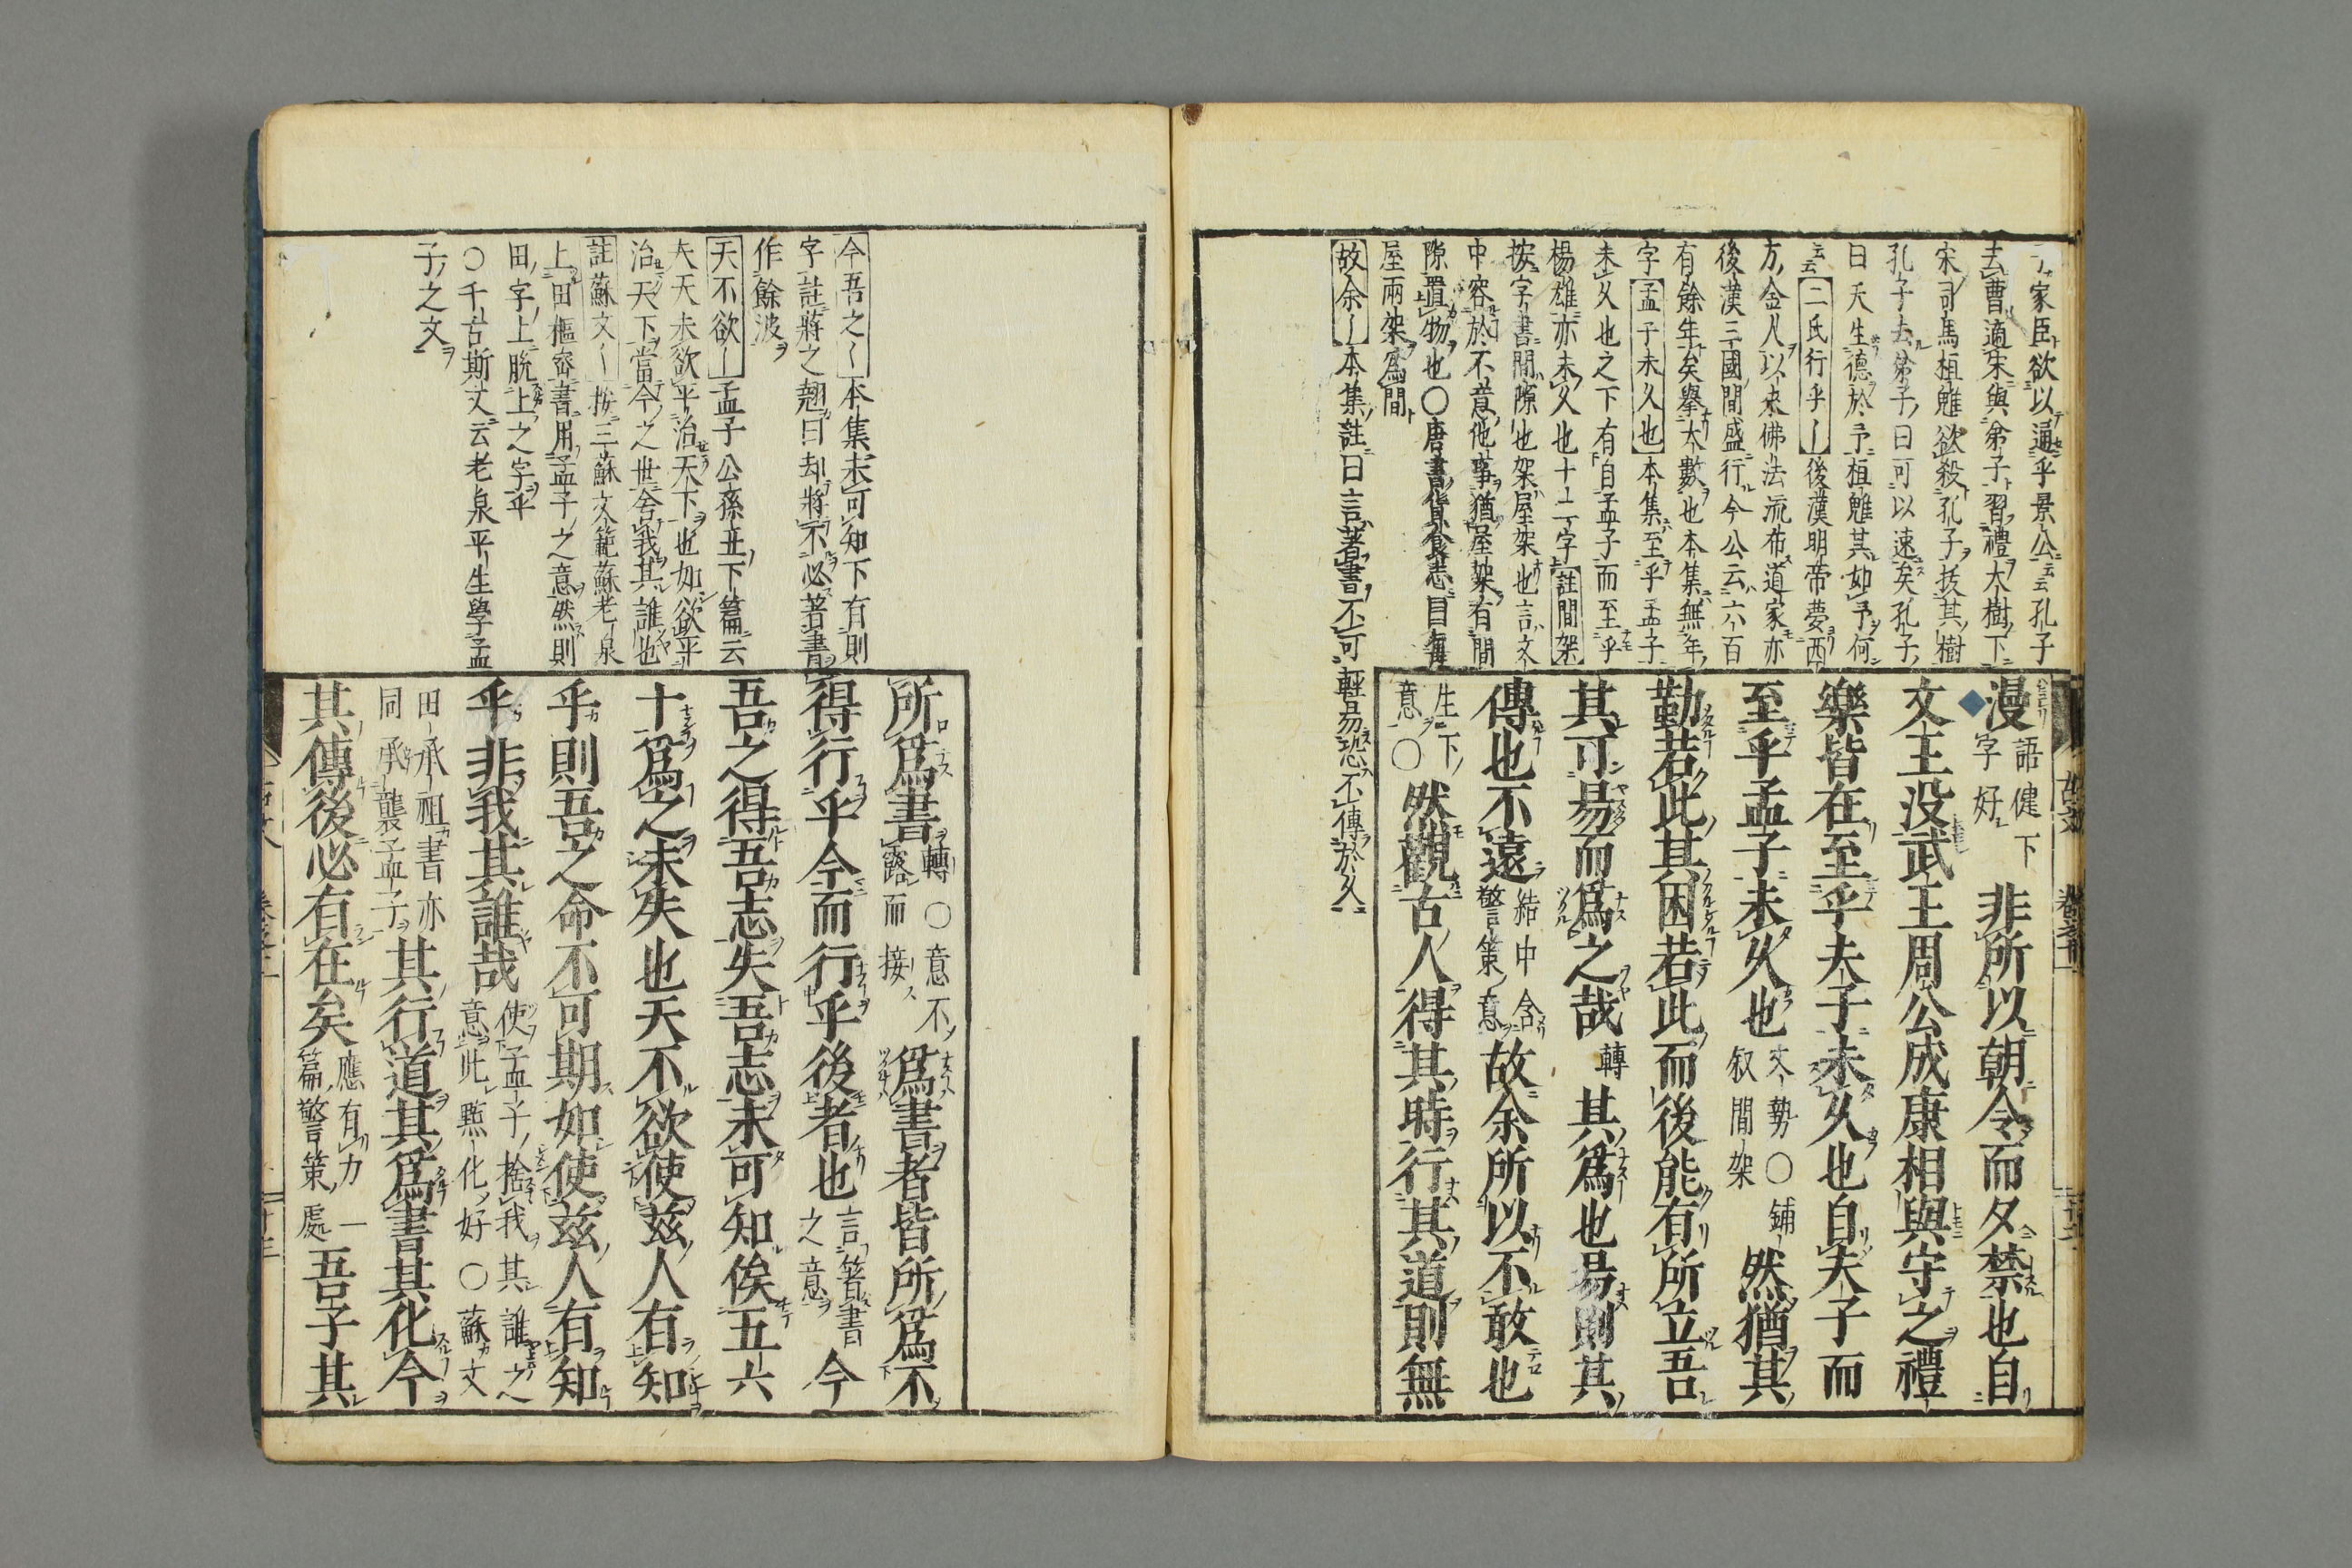 家臣欲以逼乎景公云云孔子
去曹適宋與弟子習禮大樹下
宋司馬桓魋欲殺孔子拔其樹
孔子去弟子曰可以速矣孔子
曰天生德於予桓魋其如予何
云云二氏行乎〱後漢明帝夢西
方金人以來佛法流布道家亦
後漢三國間盛行今公云六百
有餘年矣擧大數也本集無年
字孟子未久也本集至乎孟子
未久也之下有自孟子而至乎
楊雄亦未久也十二字註間架
按字書間隙也架屋架也言文
中容於不意他事猶屋架有間
隙置物也〇唐書貨食志目每
屋兩架爲間
故余〱本集註曰言著書不可輕易恐不傳於久
漫
語健下
字好
非所以朝令而夕禁也自
文王没武王周公成康相與守之禮
樂皆在至乎夫子未久也自夫子而
至乎孟子未久也
文勢〇鋪
叙間架
然猶其
勤若此其困若此而後能有所立吾
其可易而爲之哉
轉
其爲也易則其
傳也不遠
結中含
警策意
故余所以不敢也
生下
意〇
然觀古人得其時行其道則無
今吾之〱本集未可知下有則
字註蔣之翹曰却將不必著書
作餘波
天不欲〱孟子公孫丑下篇云
夫天未欲平治天下也如欲平
治天下當今之世舍我其誰也
註蘇文〱按三蘇文範蘇老泉
上田樞密書用孟子之意然則
田字上脱上之字乎
〇千古斯文云老泉平生學孟
子之文
所爲書
轉〇意不
露而接
爲書者皆所爲不
得行乎今而行乎後者也
言著書
之意
今
吾之得吾志失吾志未可知俟五六
十爲之未失也天不欲使兹人有知
乎則吾之命不可期如使兹人有知
乎非我其誰哉
使孟子捨我其誰之
意此㸃化好〇蘇文
田承祖書亦
同承襲孟子
其行道其爲書其化今
其傳後必有在矣
應有力一
篇警策處
吾子其